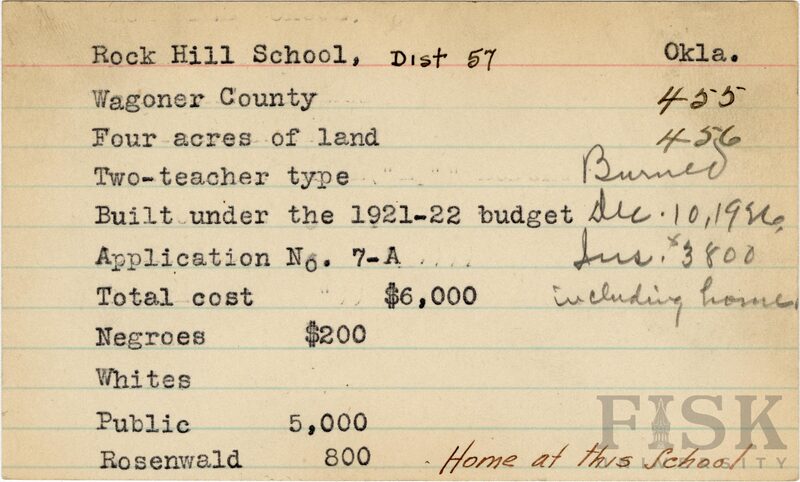 Rock Hill School, Dist 57 Okla.
Wagoner County 455
Four acres of land 456
Two-teacher type Burned
Built under the 1921-22 budget Dec. 10, 1926,
Application No. 7-A Ins. $3800
Total cost $6,000 including home.
Negroes $200
Whites
Public 5,000
Rosenwald 800 Home at this School
FISK
UNIVERSITY